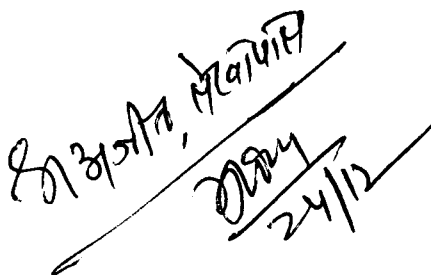 श्री अजीत, लेखापाल
24/12